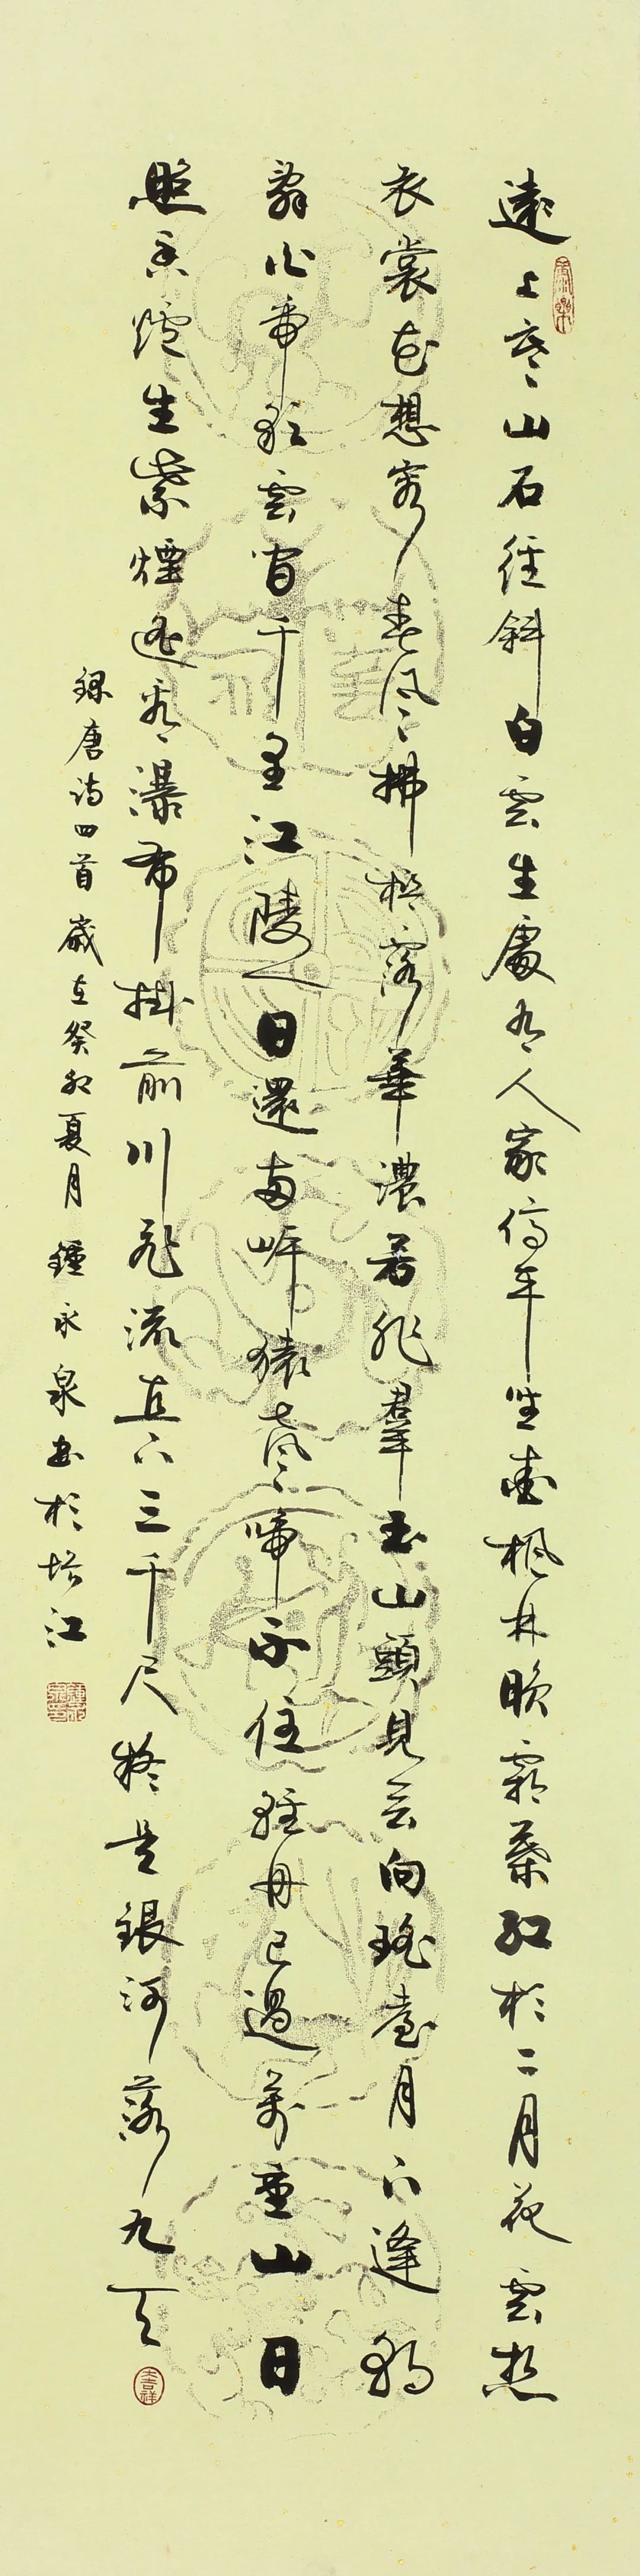 遠上寒山石径斜白雲生處有人家停车坐愛楓林晚霜葉红於二月花雲想
衣裳花想容春風拂檻露華濃若非羣玉山頭見会向瑤臺月下逢朝
辞白帝彩雲间千里江陵一日還两岸猿聲啼不住軽舟已過萬重山日
照香爐生紫煙遥看瀑布掛前川飛流直下三千尺疑是銀河落九天
録唐诗四首歲在癸卯夏月鍾永泉书於
大吉祥